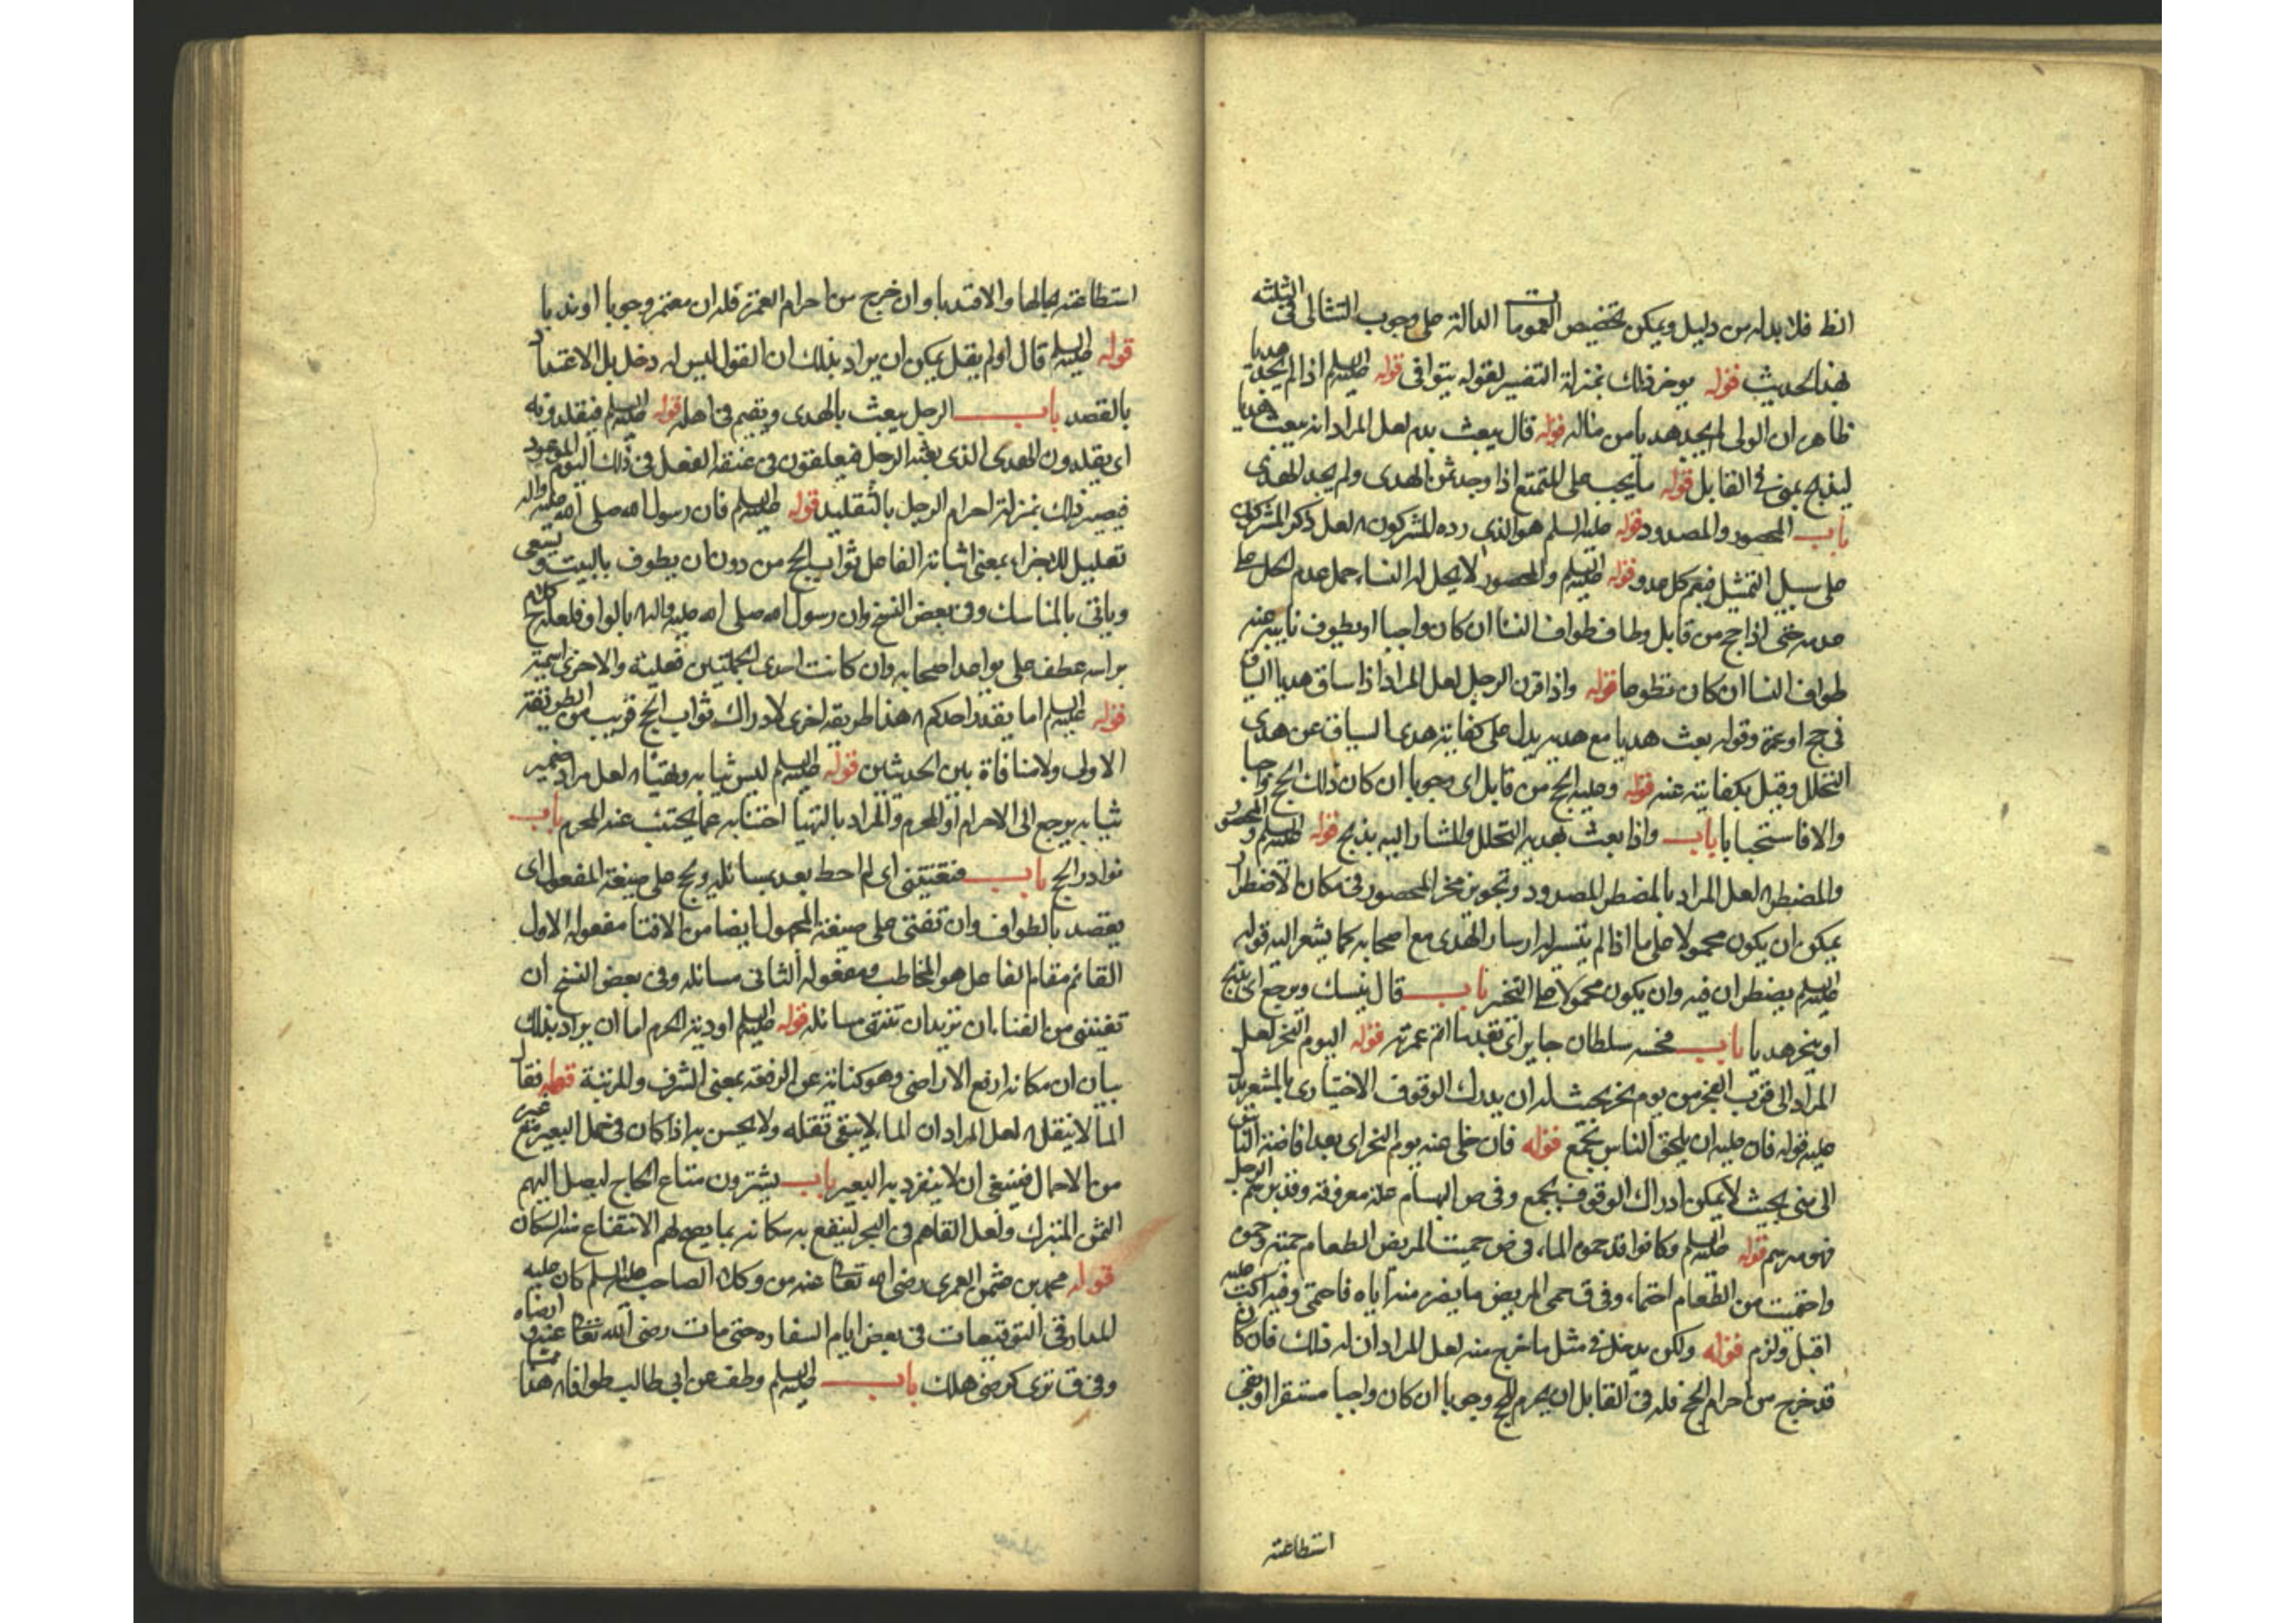 انظ فلا بد له من دليل ويمكن تخصيص العمومات الدالة على وجوب التتالى فى الثلثة
بهذا الحديث قوله يوخر ذلك بمنزلة التفسير لقوله يتوافى قوله عليه السلم اذا لم يجد هديا
ظاهره ان الولى لم يجد هديا من ماله قوله قال يبعث بدم لعل المراد انه يبعث هديا
ليذبح بمنى فى القابل قوله ما يجب على المتمتع اذا وجد ثمن الهدى ولم يجد الهدى
باب المحصور والمصدود قوله عليه السلم هو الذى رده المشركون ه لعل ذكر المشركين
على سبيل التمثيل فيعم كل عدو قوله عليه السلم والمحصور لا يحل له النساء حمل عدم الحل على
عدمه حتى اذا حج من قابل وطاف طواف النسا ان كان واجبا او يطوف نايبه عنه
طواف النسا ان كان تطوعا قوله واذا قرن الرجل لعل المراد اذا ساق هديا السياق
فى حج او عمرة وقوله بعث هديا مع هديه يدل على كفاية هدى السياق عن هدى
التحلل وقيل بكفايته عنه قوله وعليه الحج من قابل اى وجوبا ان كان ذلك الحج واجبا
والا فاستحبابا باب واذا بعث بهديه التحلل والمشار اليه بذبح قوله عليه السلم والمحصور
والمضطر ه لعل المراد بالمضطر المصدود وتجويز نحر المحصور فى مكان الاضطرار
يمكن ان يكون محمولا على ما اذا لم يتيسر له ارسال الهدى مع اصحابه كما يشعر اليه قوله
عليه السلم يضطران فيه وان يكون محمولا على التخير باب قال ينسك ويرجع اى يذبح
او ينحر هديا باب فحبسه سلطان جاير اى بعد ما اتم عمرته قوله اليوم النحر لعل
المراد الى قرب الفجر من يوم نحر بحيث له ان يدرك الوقوف الاختيارى بالمشعر يدل
عليه قوله فان عليه ان يلحق الناس بجمع قوله فان خلى عنه يوم النحر اى بعد افاضة الناس
الى منى بحيث لا يمكن ادراك الوقوف بجمع وفى ص البرسام علة معروفة وقد برسم الرجل
فهو مبرسم قوله عليه السلم وكانوا قد حموه الماء فى ص حميت المريض الطعام حمية وحموة
واحتميت من الطعام احتماء وفى ق حمى المريض ما يضره منعه اياه فاحتمى وفيه اكب عليه
اقبل ولزم قوله ولكن يدخل فى مثل ما خرج منه لعل المراد ان له ذلك فان كان
قد خرج من احرام الحج فله فى القابل ان يحرم للحج وجوبا ان كان واجبا مستقرا او بقى
استطاعته
استطاعته بحالها والا فندبا وان خرج من احرام العمرة فله ان يعتمر وجوبا او ندبا
قوله عليه السلم قال او لم يقل يمكن ان يراد بذلك ان القول ليس له دخل بل الاعتماد
بالقصد باب الرجل يبعث بالهدى ويقيم فى اهله قوله عليه السلم فيقلدونه
اى يقلدون الهدى الذى بعثه الرجل فيعلقون فى عنقه النعل فى ذلك اليوم الموعود
فيصير ذلك بمنزلة احرام الرجل بالتقليد قوله عليه السلم فان رسول الله صلى الله عليه واله
تعليل للاجزاء بمعنى اثابة الفاعل ثواب الحج من دون ان يطوف بالبيت ويسعى
وياتى بالمناسك وفى بعض النسخ وان رسول الله صلى الله عليه واله ه بالواو فلعله كلام
براسه عطف على يواعد اصحابه وان كانت احدى الجملتين فعلية والاخرى اسمية
قوله عليه السلم اما يقدر احدكم ه هذا طريقة اخرى لادراك ثواب الحج قريب من الطريقة
الاولى ولا منافاة بين الحديثين قوله عليه السلم ليس ثيابه وتهيئا ه لعل مراد ضمير
ثيابه يرجع الى الاحرام او المحرم والمراد بالتهيا اجتنابه عما يجتنب عنه المحرم باب
نوادر الحج باب فتفتينى اى لم احط بعد بمسائله ويحج على صيغة المفعول اى
يقصد بالطواف وان تفتى على صيغة المجهول ايضا من الافتا مفعوله الاول
القائم مقام الفاعل هو المخاطب ومفعوله الثانى مسائله وفى بعض النسخ ان
تفنى من الفناء ان تريد ان تفنى مسائله قوله عليه السلم اودية الحرم اما ان يراد بذلك
بيان ان مكانه ارفع الاراضى وهو كناية عن الرفعة بمعنى الشرف والمرتبة قوله فقال
الما لا يثقل ه لعل المراد ان الماء لا يبقى ثقله ولا يحسن به اذا كان فى حمل البعير مع غيره
من الاحمال فينبغى ان لا ينفرد به البعير باب يشترون متاع الحاج ليصل اليهم
الثمن المتبرك ولعل القاهم فى البحر لينفع به سكانه بما يصح لهم الانتفاع منه السكان
قوله محمد بن عثمن العمرى رضى الله تعالى عنه من وكلاء الصاحب عليه السلم كان عليه
المدار فى التوقيعات فى بعض ايام السفارة حتى مات رضى الله تعالى عنه وارضاه
وفى ق توى كرضى هلك باب عليه السلم وطف عن ابى طالب طوافا ه هذا